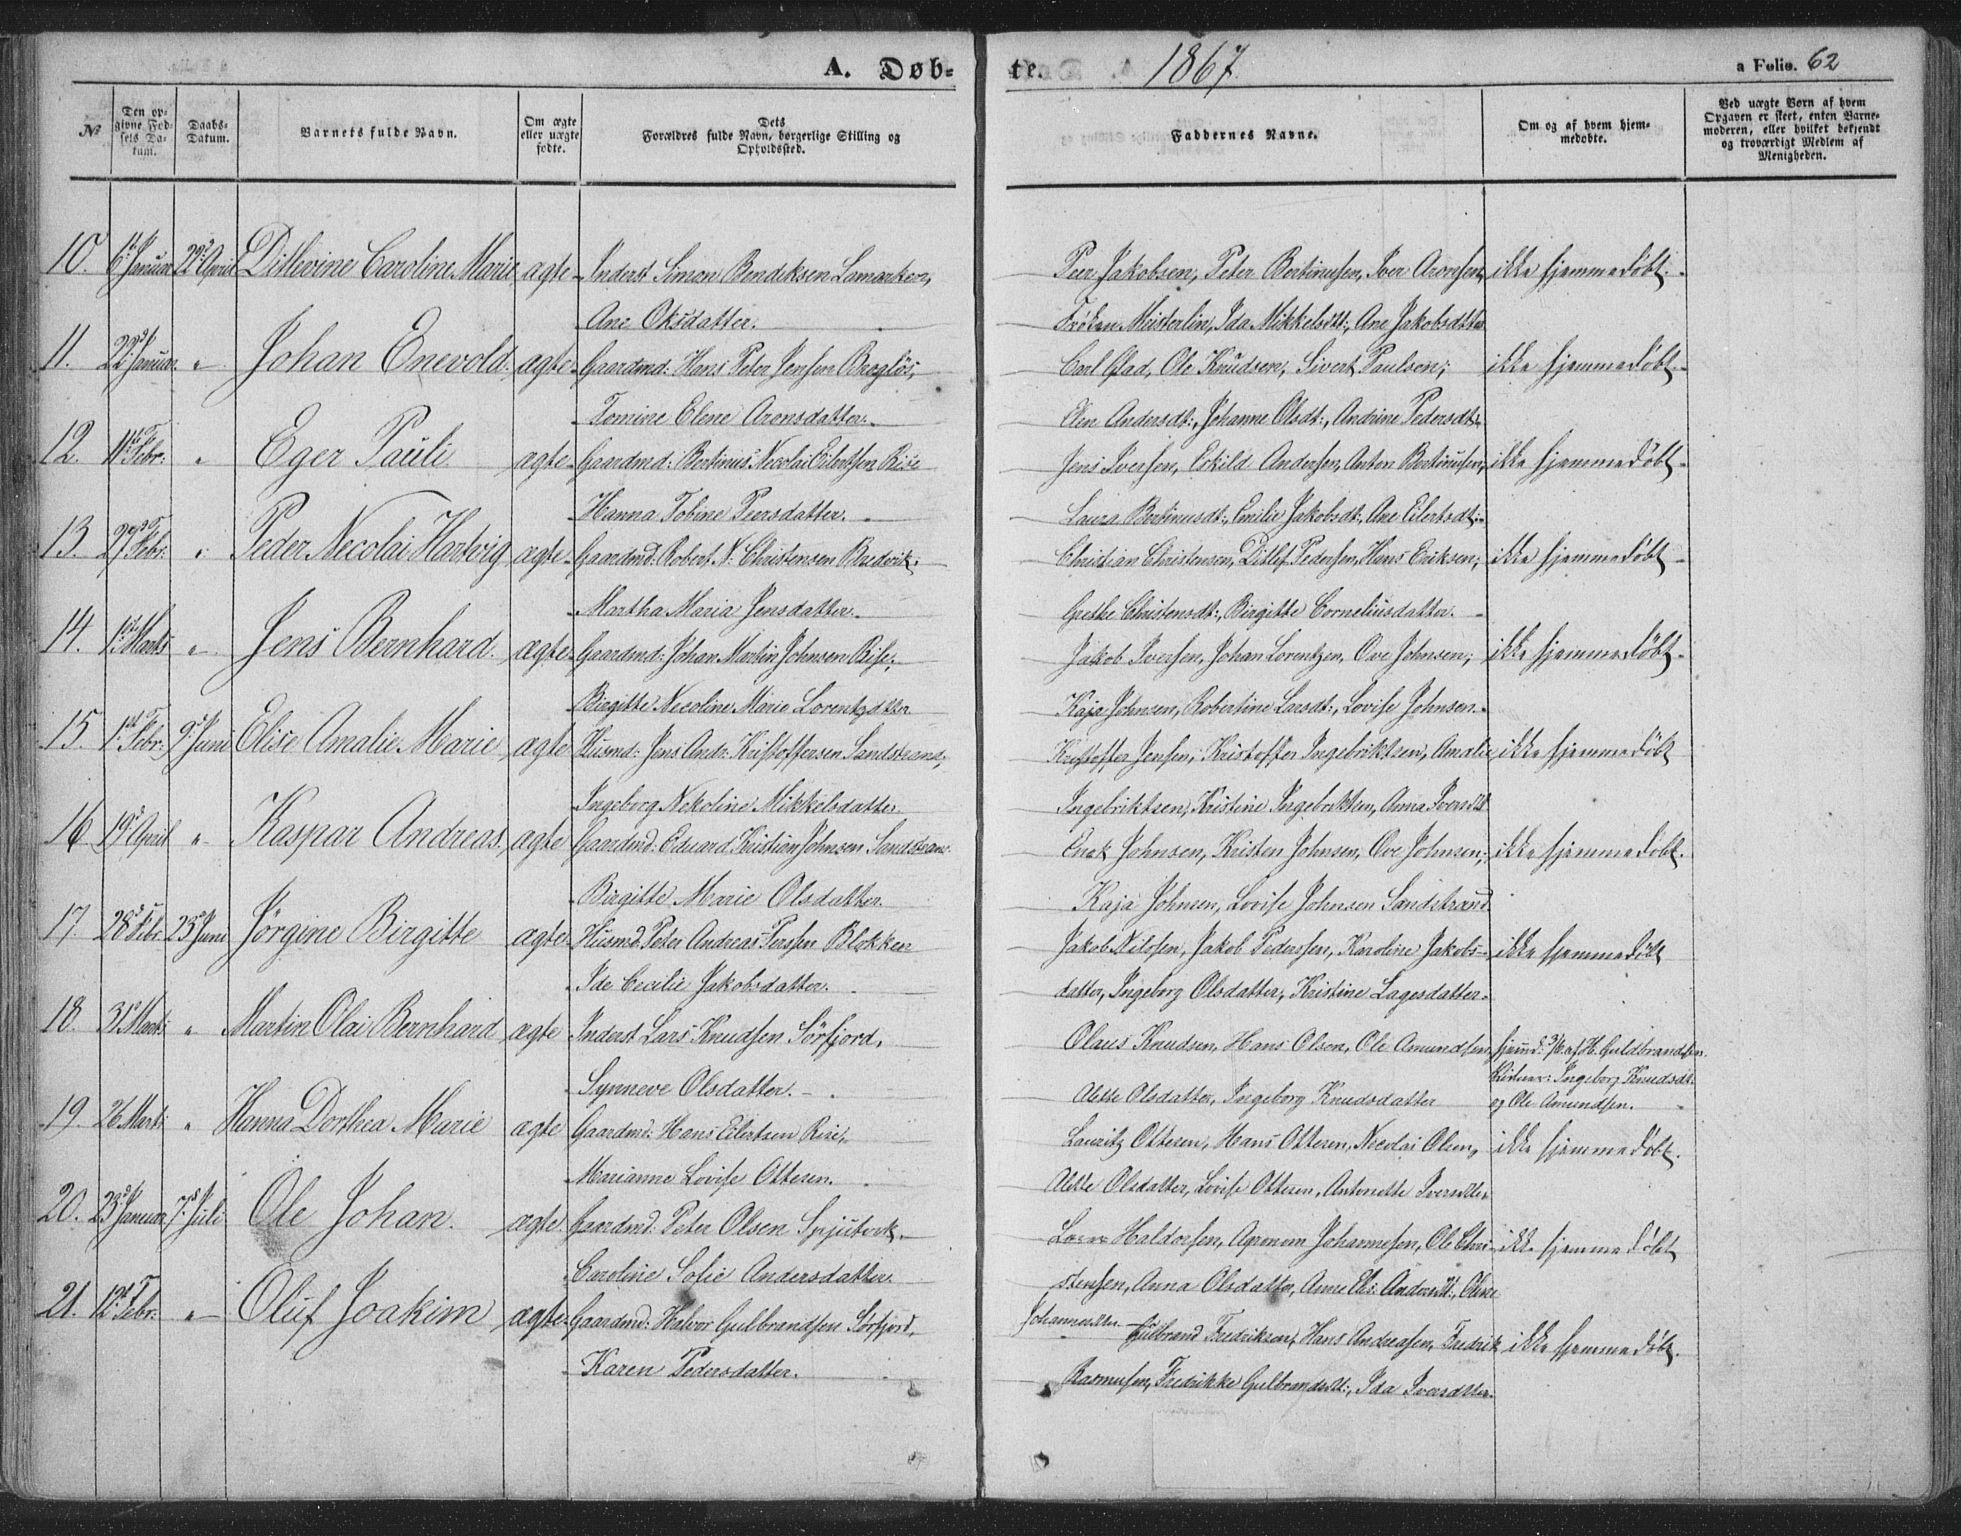 A. Døb-
te. 1867. a Folio. 62
No
Den opgivne Fødsels Datum.
Daabs-Datum.
Barnets fulde Navn.
Om ægte eller uægte fødte.
Dets Forældres fulde Navn, borgerlige Stilling og Opholdssted.
Faddernes Navne.
Om og af hvem hjemmedøbte.
Ved uægte Børn af hvem Opgaven er skeet, enten Barnemoderen, eller hvilket bekjendt og troværdigt Medlem af Menigheden.
10. 6te Januar 22de April Ditlevine Caroline Marie ægte Inderst Simon Bendiksen Lamarken, Peer Jakobsen, Peter Bertinusen, Iver Aronsen, ikke hjemmedøbt.
Ane Olsdatter. Frøken Meisterlin, Ida Mikkelsdt:, Ane Jakobsdtter
11. 22de Januar " Johan Enevold. ægte Gaardmd: Hans Peter Jensen Bregløs, Carl Glad, Ole Knudsen, Sivert Paulsen; ikke hjemmedøbt.
Tomine Elene Aronsdatter. Elen Andersdt:, Johanne Olsdt:, Andrine Pedersdt:
12. 11te Febr: " Eger Pauli ægte Gaardmd: Bertinus Nicolai Eilertsen Rise Jens Iversen, Eskild Andersen, Anton Bertinusen, ikke hjemmedøbt
Hanna Tobine Peersdatter. Laura Bertinusdt:, Emilie Jakobsdt:, Ane Eilertsdt:
13. 27de Febr: " Peder Necolai Hartvig ægte Gaardmd: Robert N. Christensen Bredvik. Christian Christensen, Ditlef Pedersen, Hans Eriksen; ikke hjemmedøbt
Martha Maria Jensdatter. Grethe Christensdt:, Birgitte Corneliusdatter.
14. 1ste Marts " Jens Bernhard. ægte Gaardmd: Johan Martin Johnsen Rise, Jakob Iversen, Johan Lorentzen, Ove Johnsen; ikke hjemmedøbt.
Birgitte Necoline Marie Lorentzdtter Kaja Johnsen, Robertine Larsdt:, Lovise Johnsen.
15. 1ste Febr: 9de Juni Elise Amalie Marie ægte Husmd: Jens Andr: Kristoffersen Sandstrand, Kristoffer Jensen, Kristoffer Ingebriktsen, Amalie ikke hjemmedøbt
Ingeborg Nekoline Mikkelsdatter Ingebriktsen, Kristine Ingebriktsen, Anna Iversdt
16 19de April " Kaspar Andreas. ægte Gaardmd: Eduard Kristian Johnsen Sandstrand Enok Johnsen, Kristen Johnsen, Ove Johnsen; ikke hjemmedøbt.
Birgitte Marie Olsdatter. Kaja Johnsen, Lovise Johnsen Sandstrand.
17. 28de Febr 23de Juni Jørgine Birgitte ægte Husmd. Peter Andreas Perssen Blokken Jakob Nilssen, Jakob Pederssen, Karoline Jakobs- ikke hjemmedøbt
Ide Cecilie Jakobsdatter. datter, Ingeborg Olsdatter, Kristine Lagesdatter.
18. 31te Mart: " Martin Olai Bernhard ægte Inderst Lars Knudsen Sørfjord, Olaus Knudsen, Hans Olsen, Ole Amundsen, hjemd: 3/4 af H. Guldbrandsen.
Synneve Olsdatter. Alette Olsdatter, Ingeborg Knudsdatter Vidner: Ingeborg Knudsdt: og Ole Amundsen.
19. 26 Mart: " Hanna Dorthea Marie ægte Gaardmd: Hans Eilertsen Rise, Lauritz Ottesen, Hans Ottesen, Necolai Olsen, ikke hjemmedøbt.
Marianne Lovise Ottesen. Alette Olsdatter, Lovise Ottesen, Antonette Iversdtter
20. 23de Januar 7de Juli Ole Johan. ægte. Gaardmd: Peter Olsen Spjutvik. Haldorsen, Agronom Johannesen, Ole Chri- ikke hjemmedøbt
Caroline Sofie Andersdatter. stensen, Anna Olsdatter, Anne Elis: Andersdt:, Oline Johannesdtter
21. 12te Febr: " Oluf Joakim ægte Gaardmd: Halvor Gulbrandsen Sørfjord, Gulbrand Fredriksen, Hans Andreasen, Fredrik ikke hjemmedøbt.
Karen Pedersdatter. Rasmusen, Fredrikke Gulbrandsdt:, Ida Iversdtter.